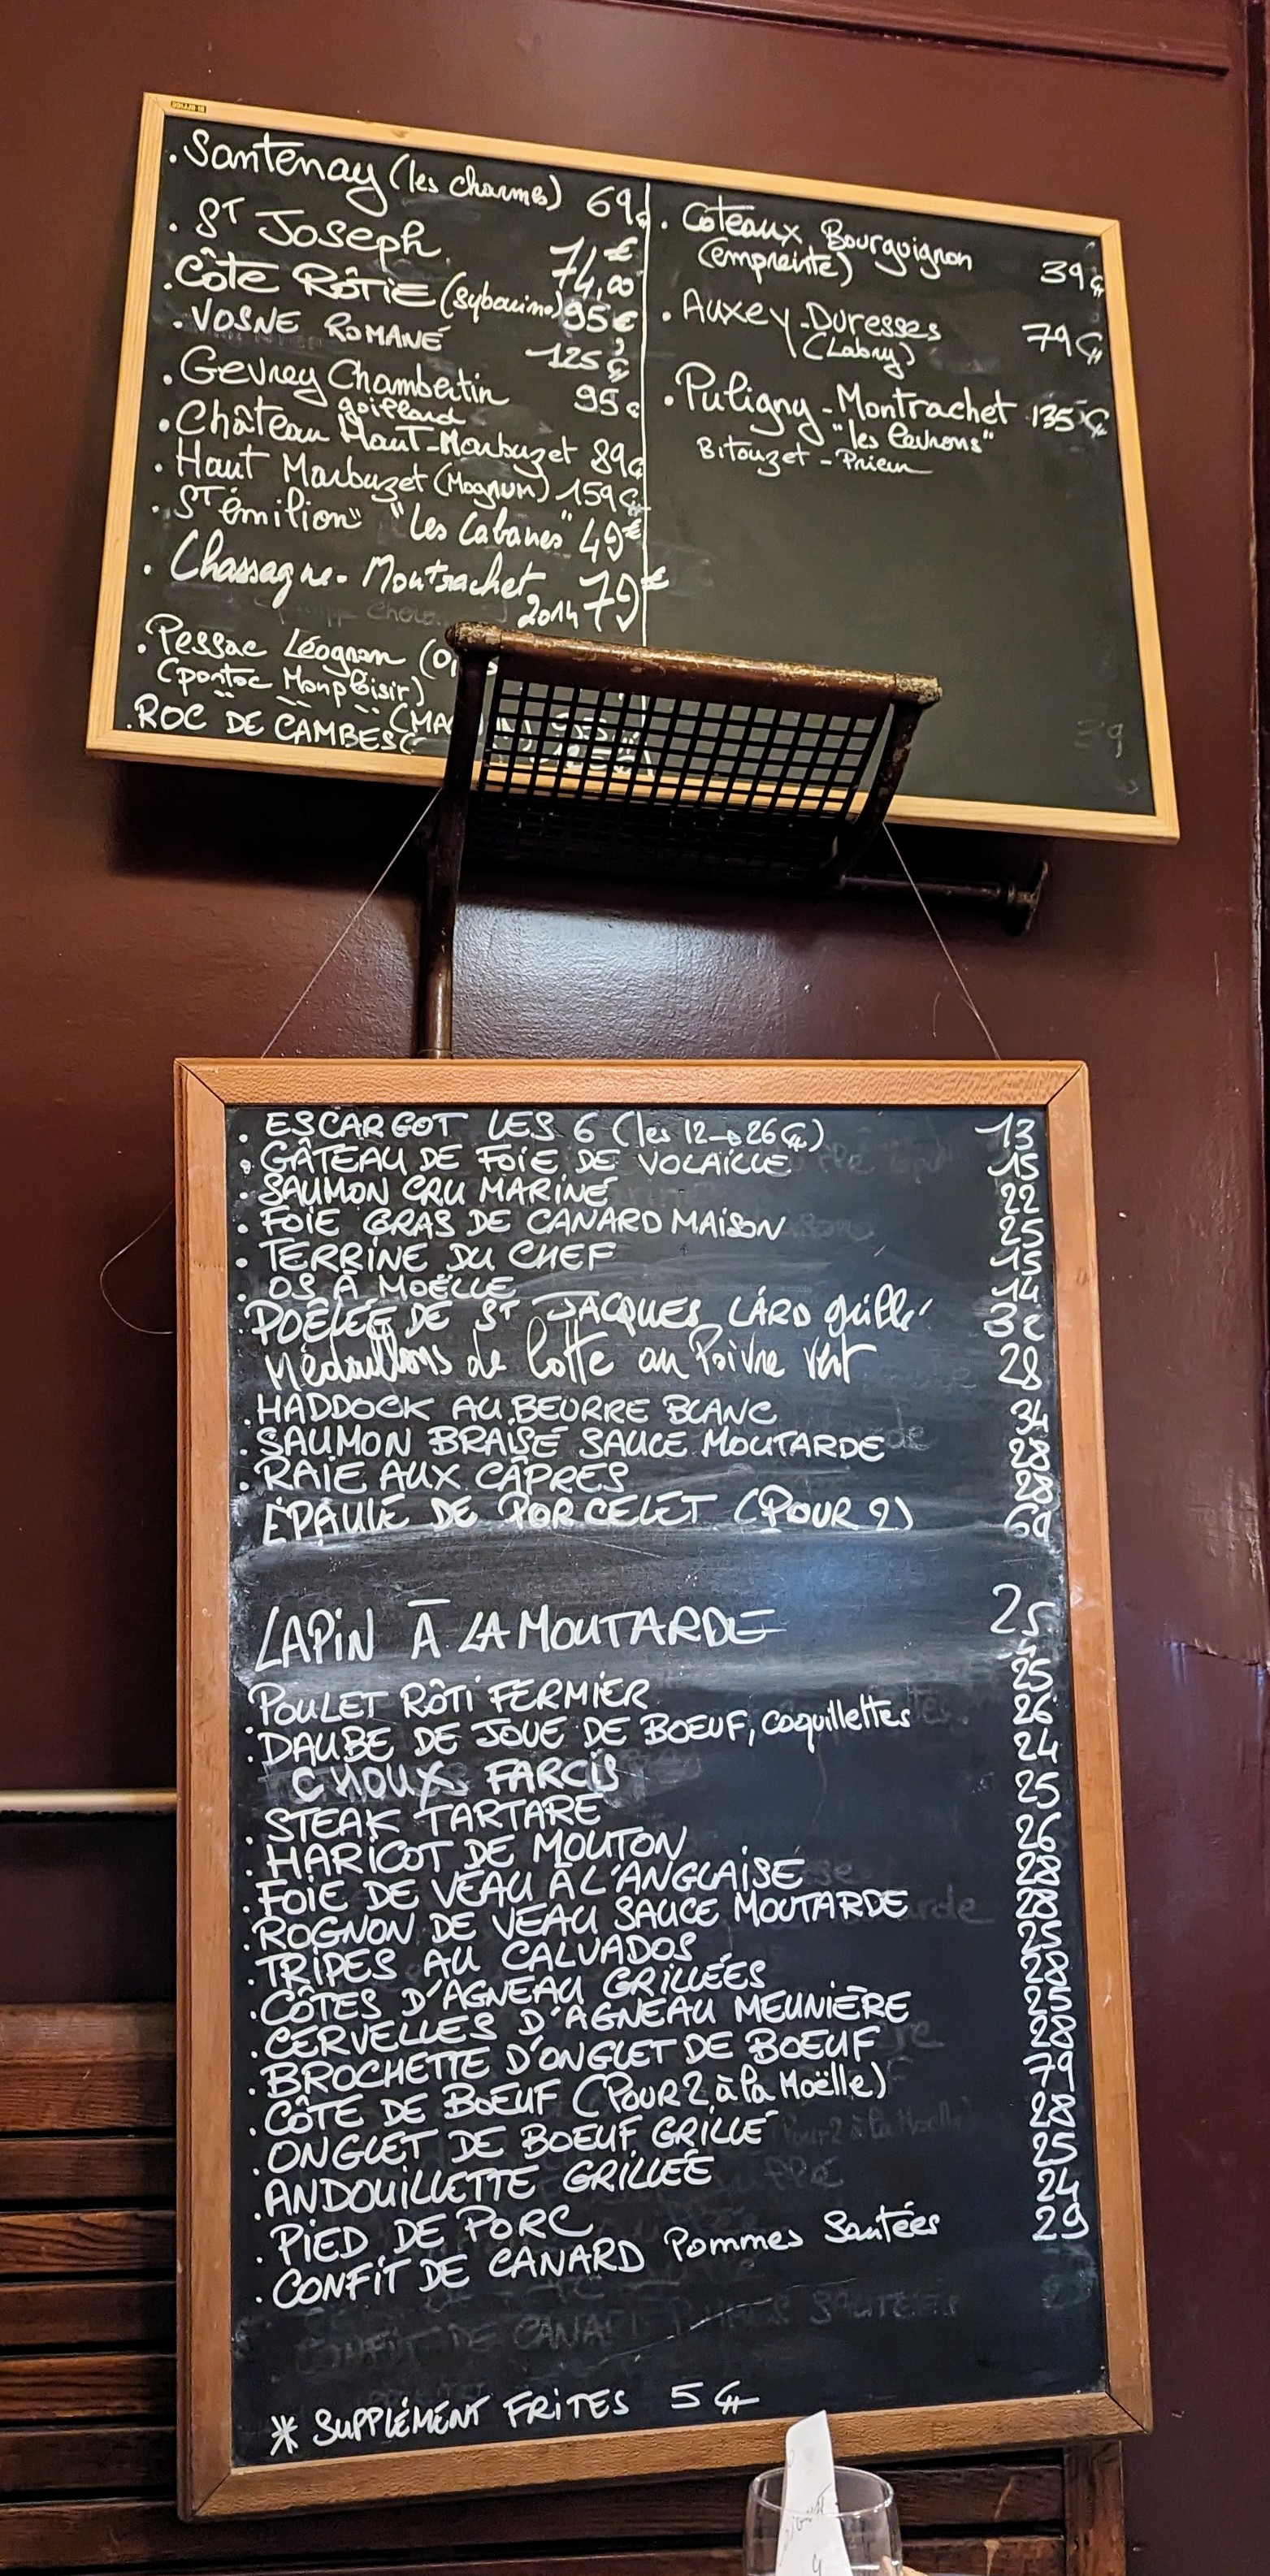 .Santenay (les charmes) 69€
. ST Joseph 74,00€
.Côte RÔTIE 95€
. VOSNE ROMANÉ 125€
. Gevrey Chambertin 95€
.Château Haut-Marbuzet 89€
. Haut Marbuzet (Magnum) 159€
. ST émilion "Les Cabanes" 49€
. Chassagne-Montrachet 2014 79€
. Pessac Léognan
(pontac Monplaisir)
.ROC DE CAMBES
. Coteaux Bourguignon
(empreinte) 39€
. Auxey-Duresses 79€
(Labry)
. Puligny-Montrachet 135€
"les
Bitouzet-Prieur
. ESCARGOT LES 6 (les 12→26€) 13
. GÂTEAU DE FOIE DE VOLAILLE 15
. SAUMON CRU MARINÉ 22
. FOIE GRAS DE CANARD MAISON 25
. TERRINE DU CHEF 15
. OS À MOËLLE 14
. POÊLÉE DE ST JACQUES LARD grillé 32
Médaillons de lotte au Poivre Vert 28
. HADDOCK AU BEURRE BLANC 34
. SAUMON BRAISÉ SAUCE MOUTARDE 28
. RAIE AUX CÂPRES 28
ÉPAULE DE PORCELET (POUR 2)
LAPIN À LA MOUTARDE 25
. POULET RÔTI FERMIER 25
. DAUBE DE JOUE DE BOEUF, coquillettes 26
CHOUX FARCIS 24
. STEAK TARTARE 25
. HARICOT DE MOUTON 26
. FOIE DE VEAU À L'ANGLAISE 28
. ROGNON DE VEAU SAUCE MOUTARDE 28
. TRIPES AU CALVADOS 25
. CÔTES D'AGNEAU GRILLÉES 28
. CERVELLES D'AGNEAU MEUNIÈRE 25
. BROCHETTE D'ONGLET DE BOEUF 28
. CÔTE DE BOEUF (POUR 2, à la Moëlle) 79
. ONGLET DE BOEUF GRILLÉ 28
. ANDOUILLETTE GRILLÉE 25
. PIED DE PORC 24
. CONFIT DE CANARD Pommes Sautées 29
* SUPPLÉMENT FRITES 5€